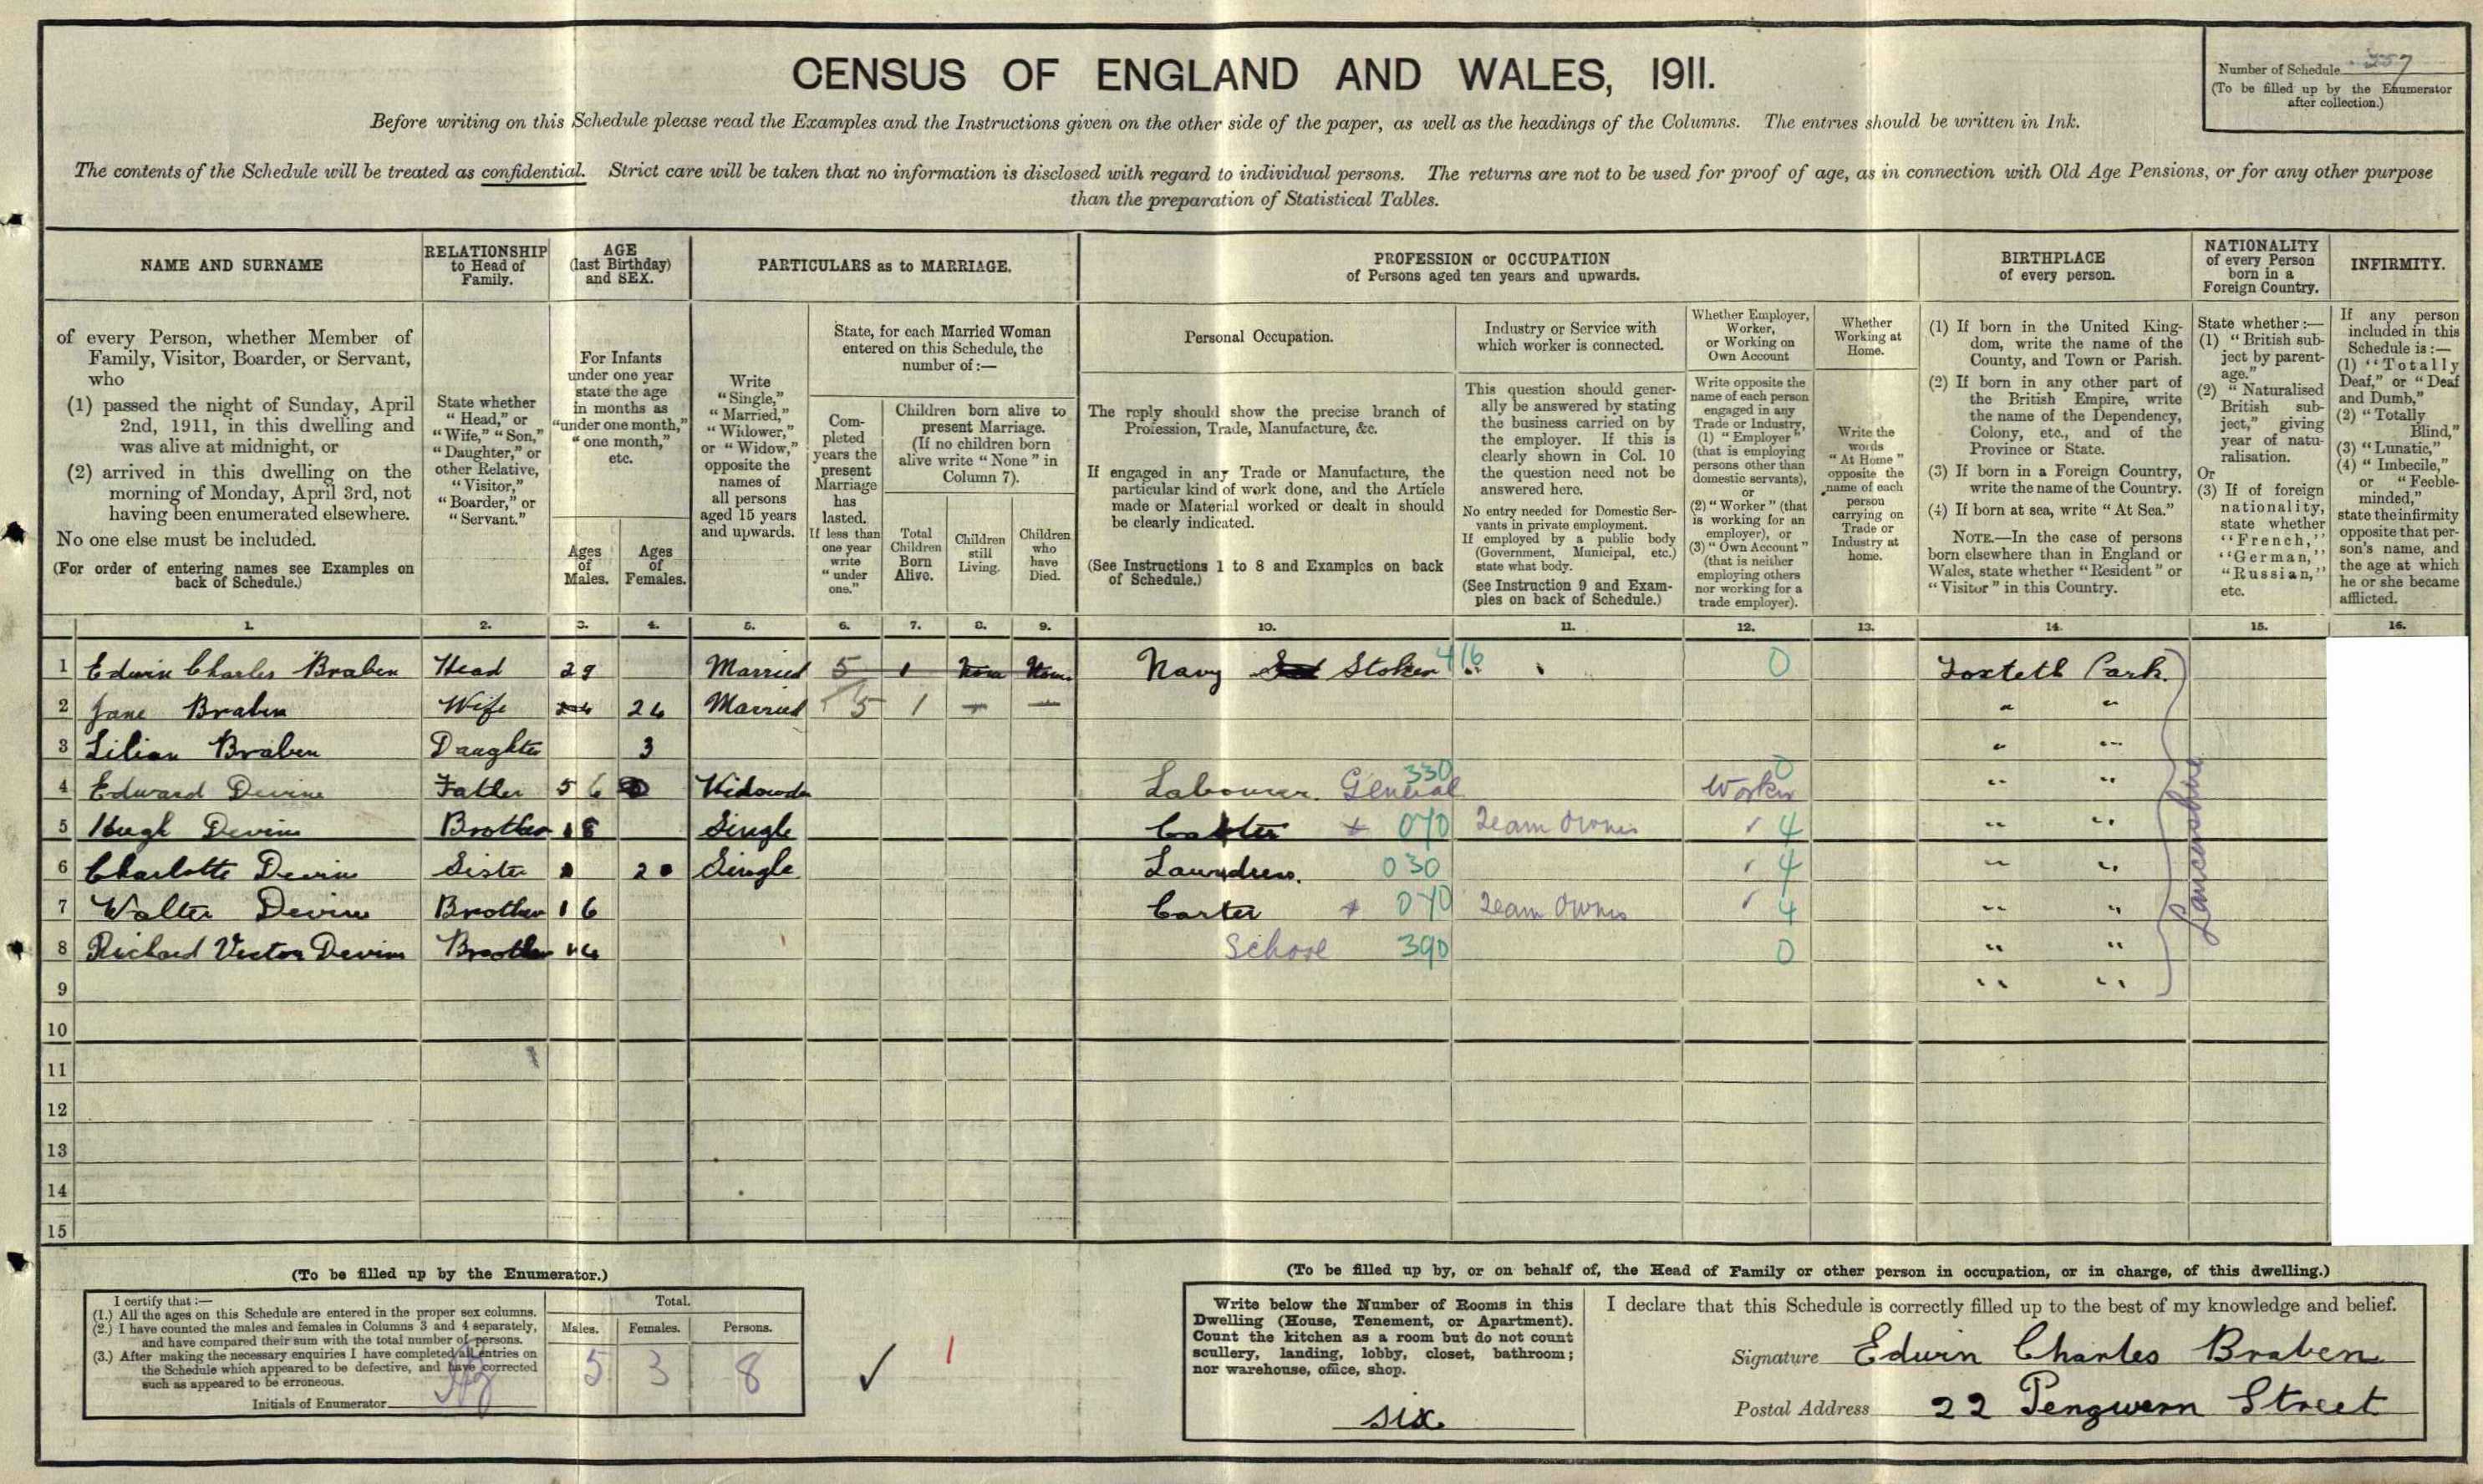 CENSUS OF ENGLAND AND WALES, 1911.
Number of Schedule 357
(To be filled up by the Enumerator
after collection.)
Before writing on this Schedule please read the Examples and the Instructions given on the other side of the paper, as well as the headings of the Columns. The entries should be written in Ink.
The contents of the Schedule will be treated as confidential. Strict care will be taken that no information is disclosed with regard to individual persons. The returns are not to be used for proof of age, as in connection with Old Age Pensions, or for any other purpose
than the preparation of Statistical Tables.
NAME AND SURNAME
of every Person, whether Member of
Family, Visitor, Boarder, or Servant,
who
(1) passed the night of Sunday, April
2nd, 1911, in this dwelling and
was alive at midnight, or
(2) arrived in this dwelling on the
morning of Monday, April 3rd, not
having been enumerated elsewhere.
No one else must be included.
(For order of entering names see Examples on
back of Schedule.)
RELATIONSHIP
to Head of
Family.
State whether
"Head," or
"Wife," "Son,"
"Daughter," or
other Relative,
"Visitor,"
"Boarder," or
"Servant."
AGE
(last Birthday)
and SEX.
For Infants
under one year
state the age
in months as
"under one month,"
"one month,"
etc.
Ages
of
Males.
Ages
of
Females.
PARTICULARS as to MARRIAGE.
Write
"Single,"
"Married,"
"Widower,"
or "Widow,"
opposite the
names of
all persons
aged 15 years
and upwards.
State, for each Married Woman
entered on this Schedule, the
number of:—
Com-
pleted
years the
present
Marriage
has
lasted.
If less than
one year
write
"under
one."
Children born alive to
present Marriage.
(If no children born
alive write "None" in
Column 7).
Total
Children
Born
Alive.
Children
still
Living.
Children
who
have
Died.
PROFESSION or OCCUPATION
of Persons aged ten years and upwards.
Personal Occupation.
The reply should show the precise branch of
Profession, Trade, Manufacture, &c.
If engaged in any Trade or Manufacture, the
particular kind of work done, and the Article
made or Material worked or dealt in should
be clearly indicated.
(See Instructions 1 to 8 and Examples on back
of Schedule.)
Industry or Service with
which worker is connected.
This question should gener-
ally be answered by stating
the business carried on by
the employer. If this is
clearly shown in Col. 10
the question need not be
answered here.
No entry needed for Domestic Ser-
vants in private employment.
If employed by a public body
(Government, Municipal, etc.)
state what body.
(See Instruction 9 and Exam-
ples on back of Schedule.)
Whether Employer,
Worker,
or Working on
Own Account
Write opposite the
name of each person
engaged in any
Trade or Industry,
(1) "Employer"
(that is employing
persons other than
domestic servants),
or
(2) "Worker" (that
is working for an
employer), or
(3) "Own Account"
(that is neither
employing others
nor working for a
trade employer).
Whether
Working at
Home.
Write the
words
"At Home"
opposite the
name of each
person
carrying on
Trade or
Industry at
home.
BIRTHPLACE
of every person.
(1) If born in the United King-
dom, write the name of the
County, and Town or Parish.
(2) If born in any other part of
the British Empire, write
the name of the Dependency,
Colony, etc., and of the
Province or State.
(3) If born in a Foreign Country,
write the name of the Country.
(4) If born at sea, write "At Sea."
NOTE.—In the case of persons
born elsewhere than in England or
Wales, state whether "Resident" or
"Visitor" in this Country.
NATIONALITY
of every Person
born in a
Foreign Country.
State whether:—
(1) "British sub-
ject by parent-
age."
(2) "Naturalised
British sub-
ject," giving
year of natu-
ralisation.
Or
(3) If of foreign
nationality,
state whether
"French,"
"German,"
"Russian,"
etc.
INFIRMITY.
If any person
included in this
Schedule is:—
(1) "Totally
Deaf," or "Deaf
and Dumb,"
(2) "Totally
Blind,"
(3) "Lunatic,"
(4) "Imbecile,"
or "Feeble-
minded,"
state the infirmity
opposite that per-
son's name, and
the age at which
he or she became
afflicted.
1. 2. 3. 4. 5. 6. 7. 8. 9. 10. 11. 12. 13. 14. 15. 16.
1 Edwin Charles Braben Head 29 Married 5 1 None None Navy Stoker 416 0 Toxteth Park
2 Jane Braben Wife 26 Married 5 1 — — " "
3 Lilian Braben Daughter 3 " "
4 Edward Devine Father 56 Widower Labourer General 330 Worker 0 " "
5 Hugh Devine Brother 18 Single Carter + 070 Team Owner ✓ 4 " "
6 Charlotte Devine Sister 20 Single Laundress. 030 ✓ 4 " "
7 Walter Devine Brother 16 Carter + 070 Team Owner ✓ 4 " "
8 Richard Victor Devine Brother 14 School 390 0 " "
9 " "
Lancashire
10
11
12
13
14
15
(To be filled up by the Enumerator.)
I certify that:—
(1.) All the ages on this Schedule are entered in the proper sex columns.
(2.) I have counted the males and females in Columns 3 and 4 separately,
and have compared their sum with the total number of persons.
(3.) After making the necessary enquiries I have completed all entries on
the Schedule which appeared to be defective, and have corrected
such as appeared to be erroneous.
Initials of Enumerator
Total.
Males. Females. Persons.
5 3 8
✓ 1
(To be filled up by, or on behalf of, the Head of Family or other person in occupation, or in charge, of this dwelling.)
Write below the Number of Rooms in this
Dwelling (House, Tenement, or Apartment).
Count the kitchen as a room but do not count
scullery, landing, lobby, closet, bathroom;
nor warehouse, office, shop.
six
I declare that this Schedule is correctly filled up to the best of my knowledge and belief.
Signature Edwin Charles Braben
Postal Address 22 Pengwern Street